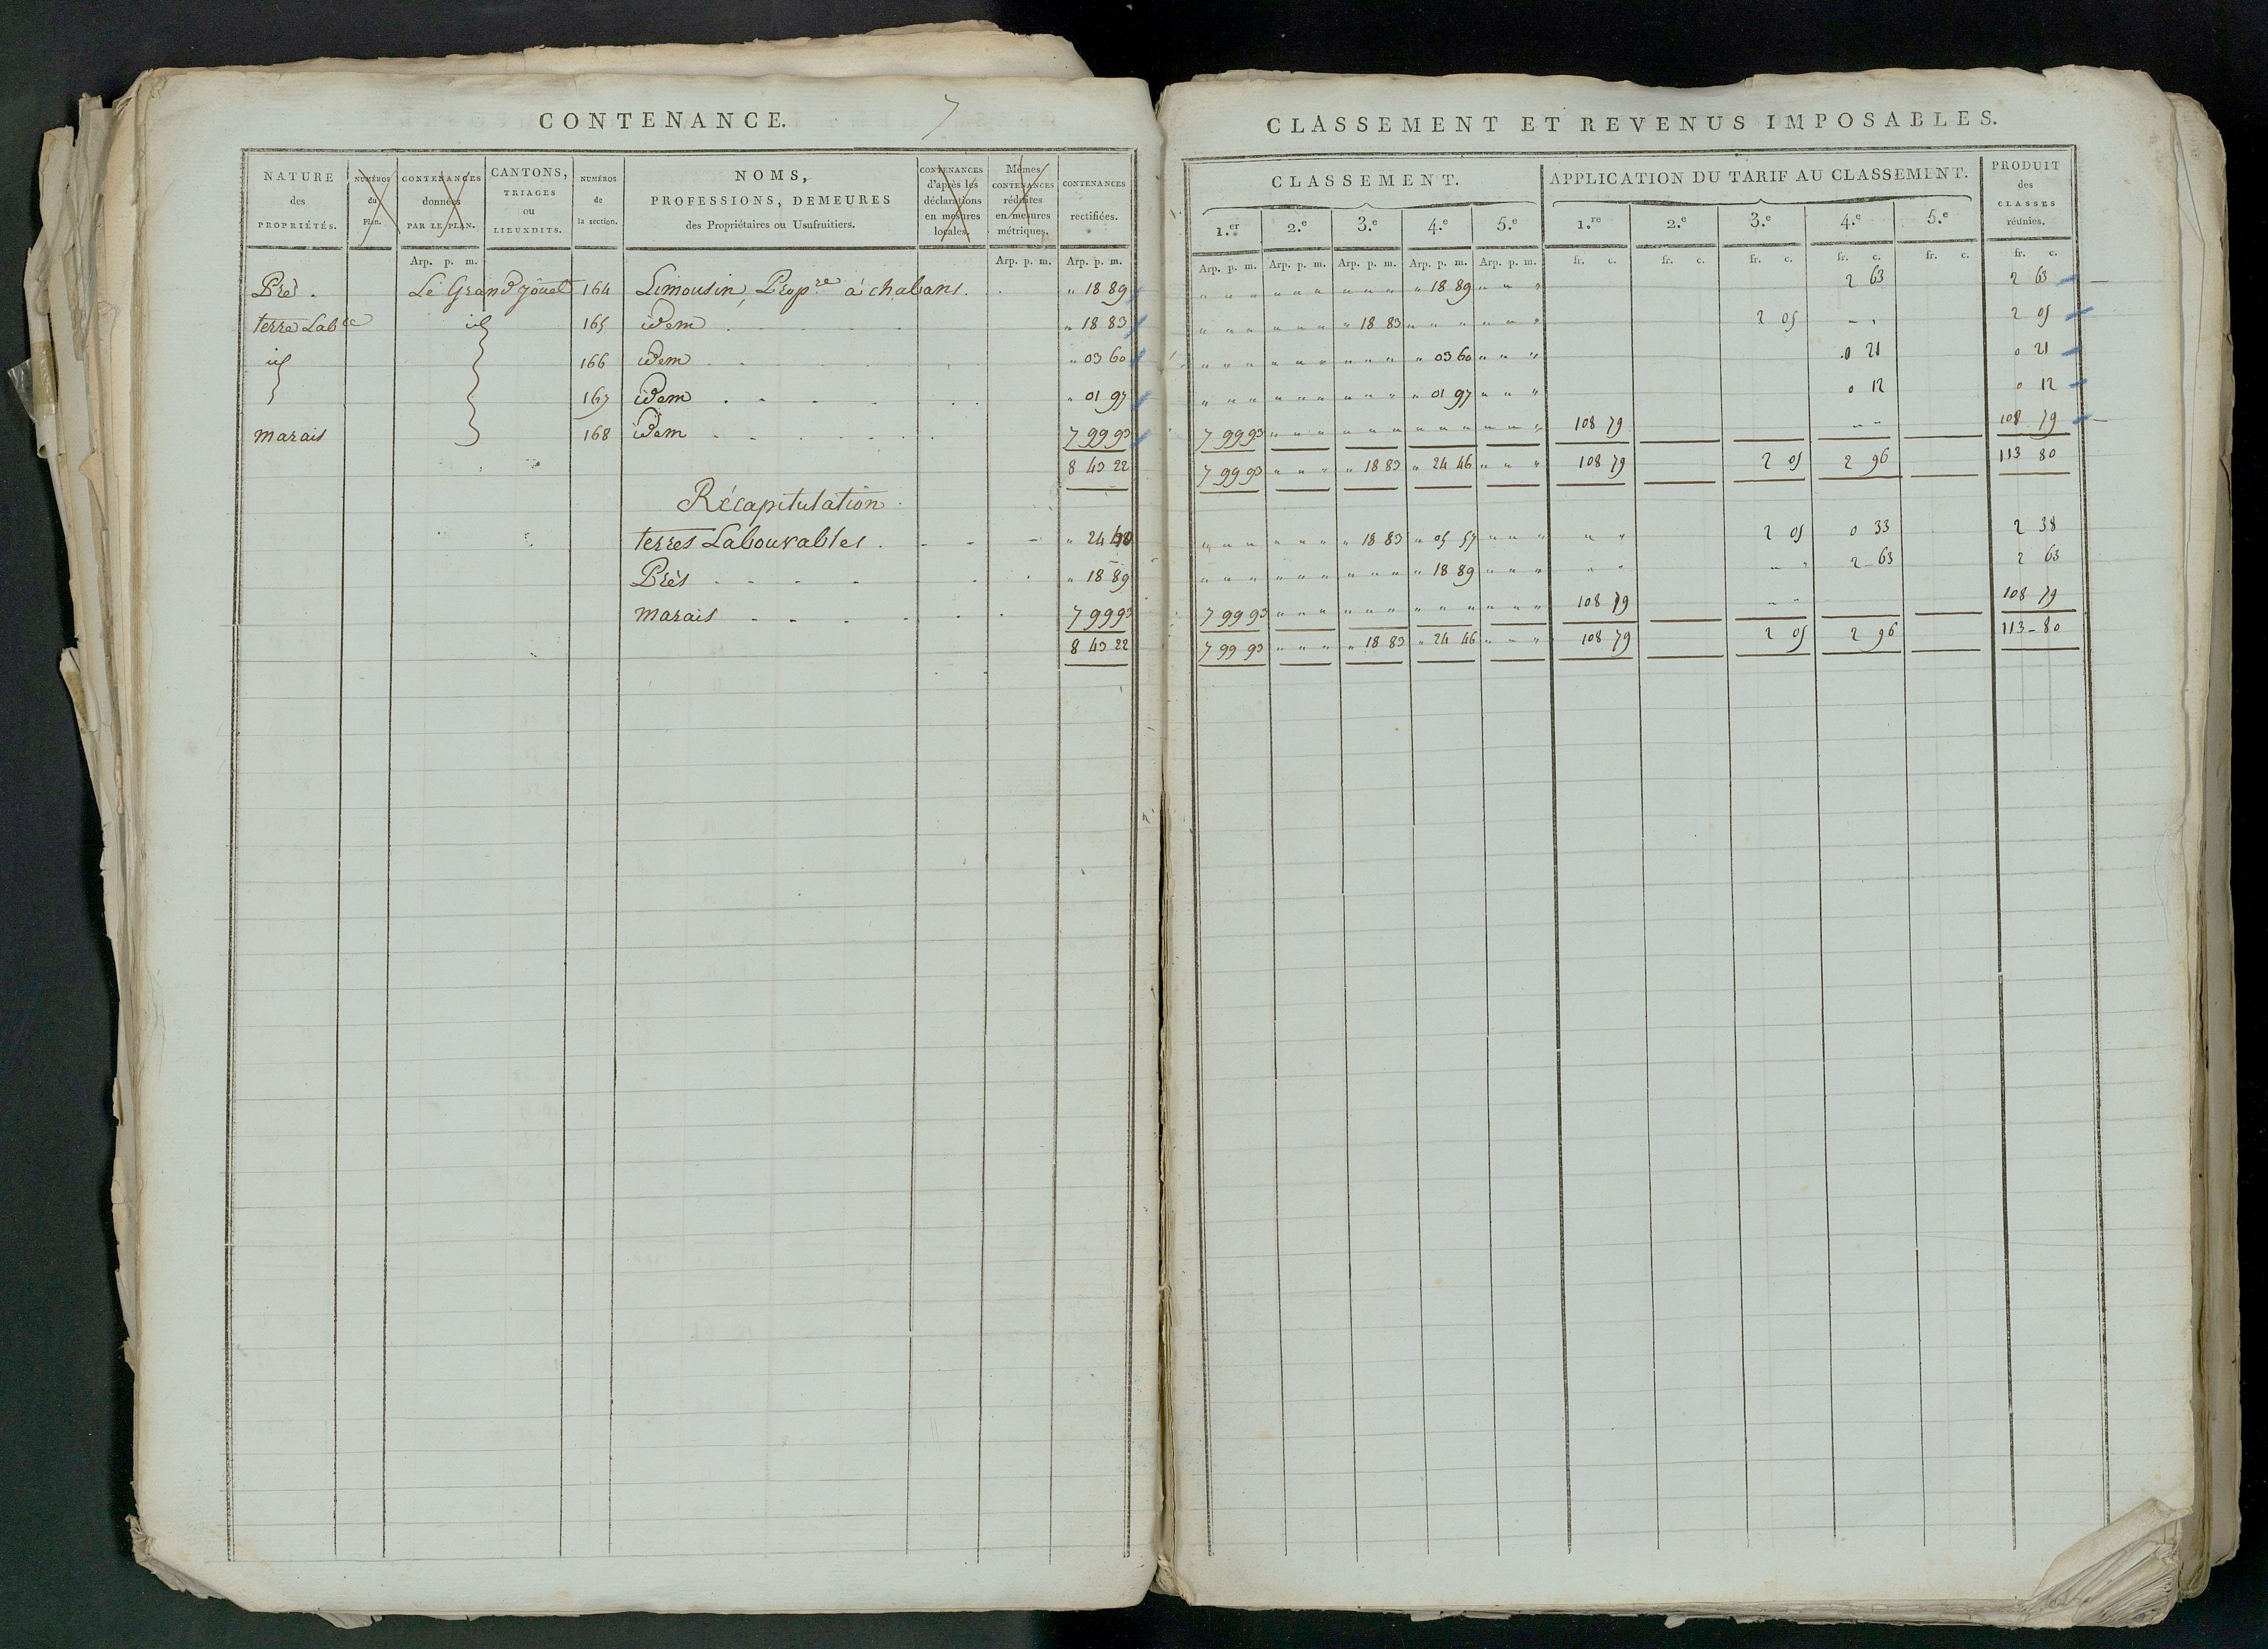 CONTENANCE. 7
NATURE des PROPRIÉTÉS. | NUMÉROS du Plan. | CONTENANCES données PAR LE PLAN. | CANTONS, TRIAGES ou LIEUXDITS. | NUMÉROS de la section. | NOMS, PROFESSIONS, DEMEURES des Propriétaires ou Usufruitiers. | CONTENANCES d'après les déclarations en mesures locales. | Mêmes CONTENANCES réduites en mesures métriques. | CONTENANCES rectifiées.
Arp. p. m. Arp. p. m. Arp. p. m.
Pré. Le Grand jouet 164 Limousin, Propre à chabans. " 18 89
terre Labce id 165 idem " 18 83
id 166 idem " 03 60
167 idem " 01 97
marais 168 idem 7 99 93
8 43 22
Récapitulation
terres Labourables " 24 40
Près " 18 89
marais 7 99 93
8 43 22
CLASSEMENT ET REVENUS IMPOSABLES.
CLASSEMENT. | APPLICATION DU TARIF AU CLASSEMENT. | PRODUIT des CLASSES réunies.
1.er 2.e 3.e 4.e 5.e 1.re 2.e 3.e 4.e 5.e
Arp. p. m. Arp. p. m. Arp. p. m. Arp. p. m. Arp. p. m. fr. c. fr. c. fr. c. fr. c. fr. c. fr. c.
" " " " " " " " " " 18 89 " " " 2 63 2 63
" " " " " " " 18 83 " " " " " " 2 05 2 05
" " " " " " " " " " 03 60 " " " 0 21 0 21
" " " " " " " " " " 01 97 " " " 0 12 0 12
7 99 93 " " " " " " " " " " " " 108 79 108 79
7 99 93 " " " " 18 83 " 24 46 " " " 108 79 2 05 2 96 113 80
" " " " " " " 18 83 " 05 57 " " " " " 2 05 0 33 2 38
" " " " " " " " " " 18 89 " " " " " 2 63 2 63
7 99 93 " " " " " " " " " " " " 108 79 108 79
7 99 93 " " " " 18 83 " 24 46 " " " 108 79 2 05 2 96 113 80